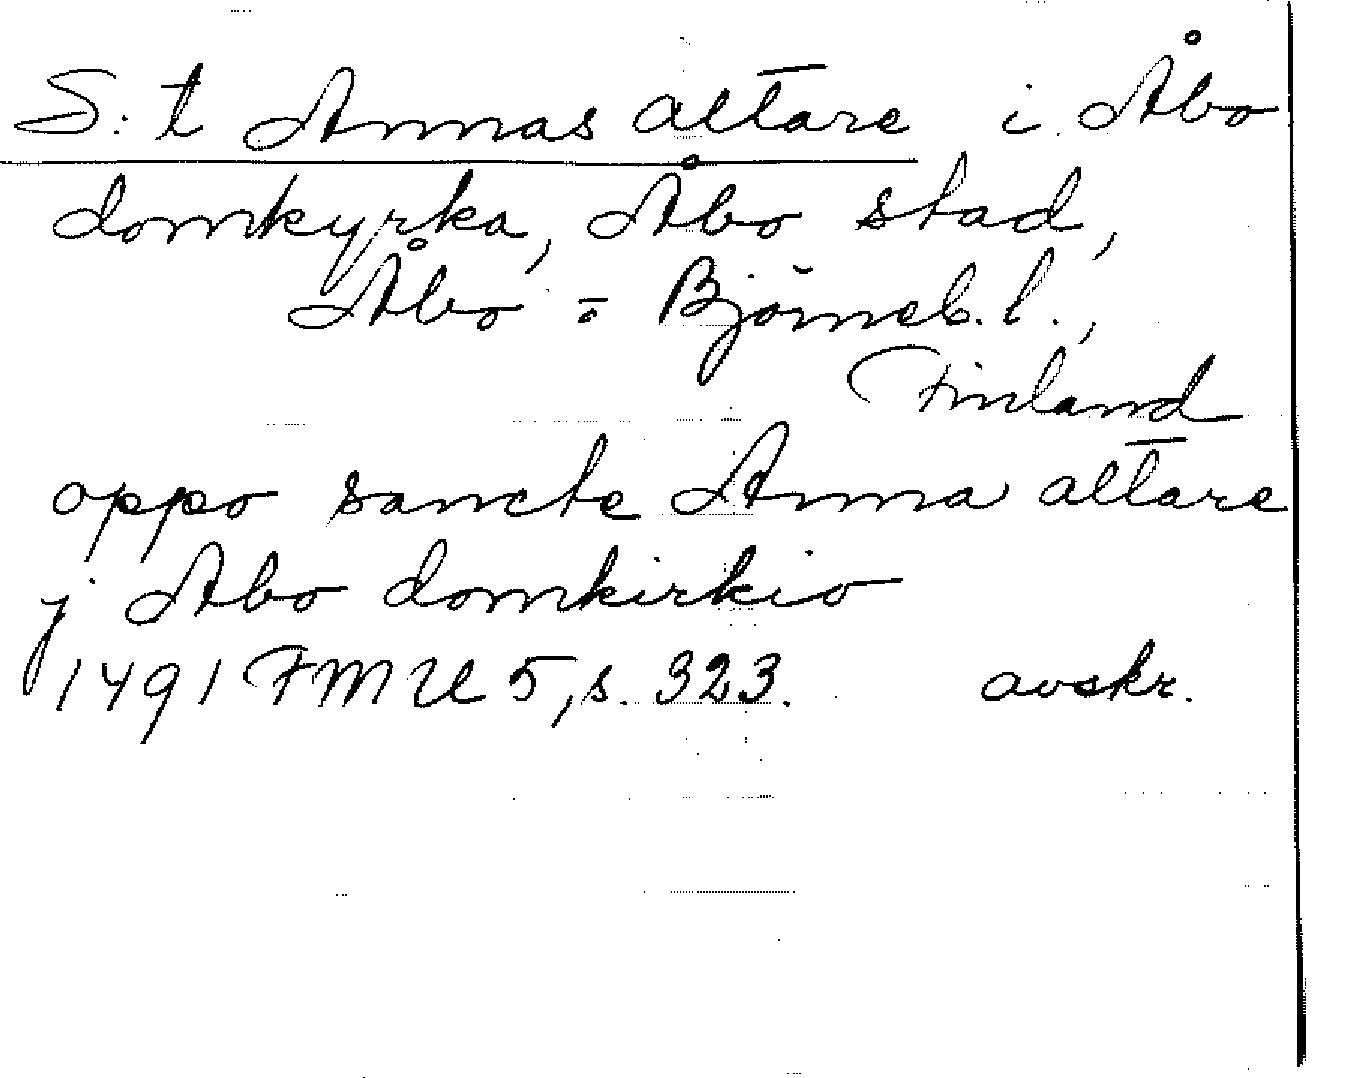 S:t Annas altare i Åbo
domkyrka, Åbo stad,
Åbo = Björneb. l.,
Finland
oppo sancte Anna altare
j Abo domkirkio
1491 FMU 5, s. 323. avskr.